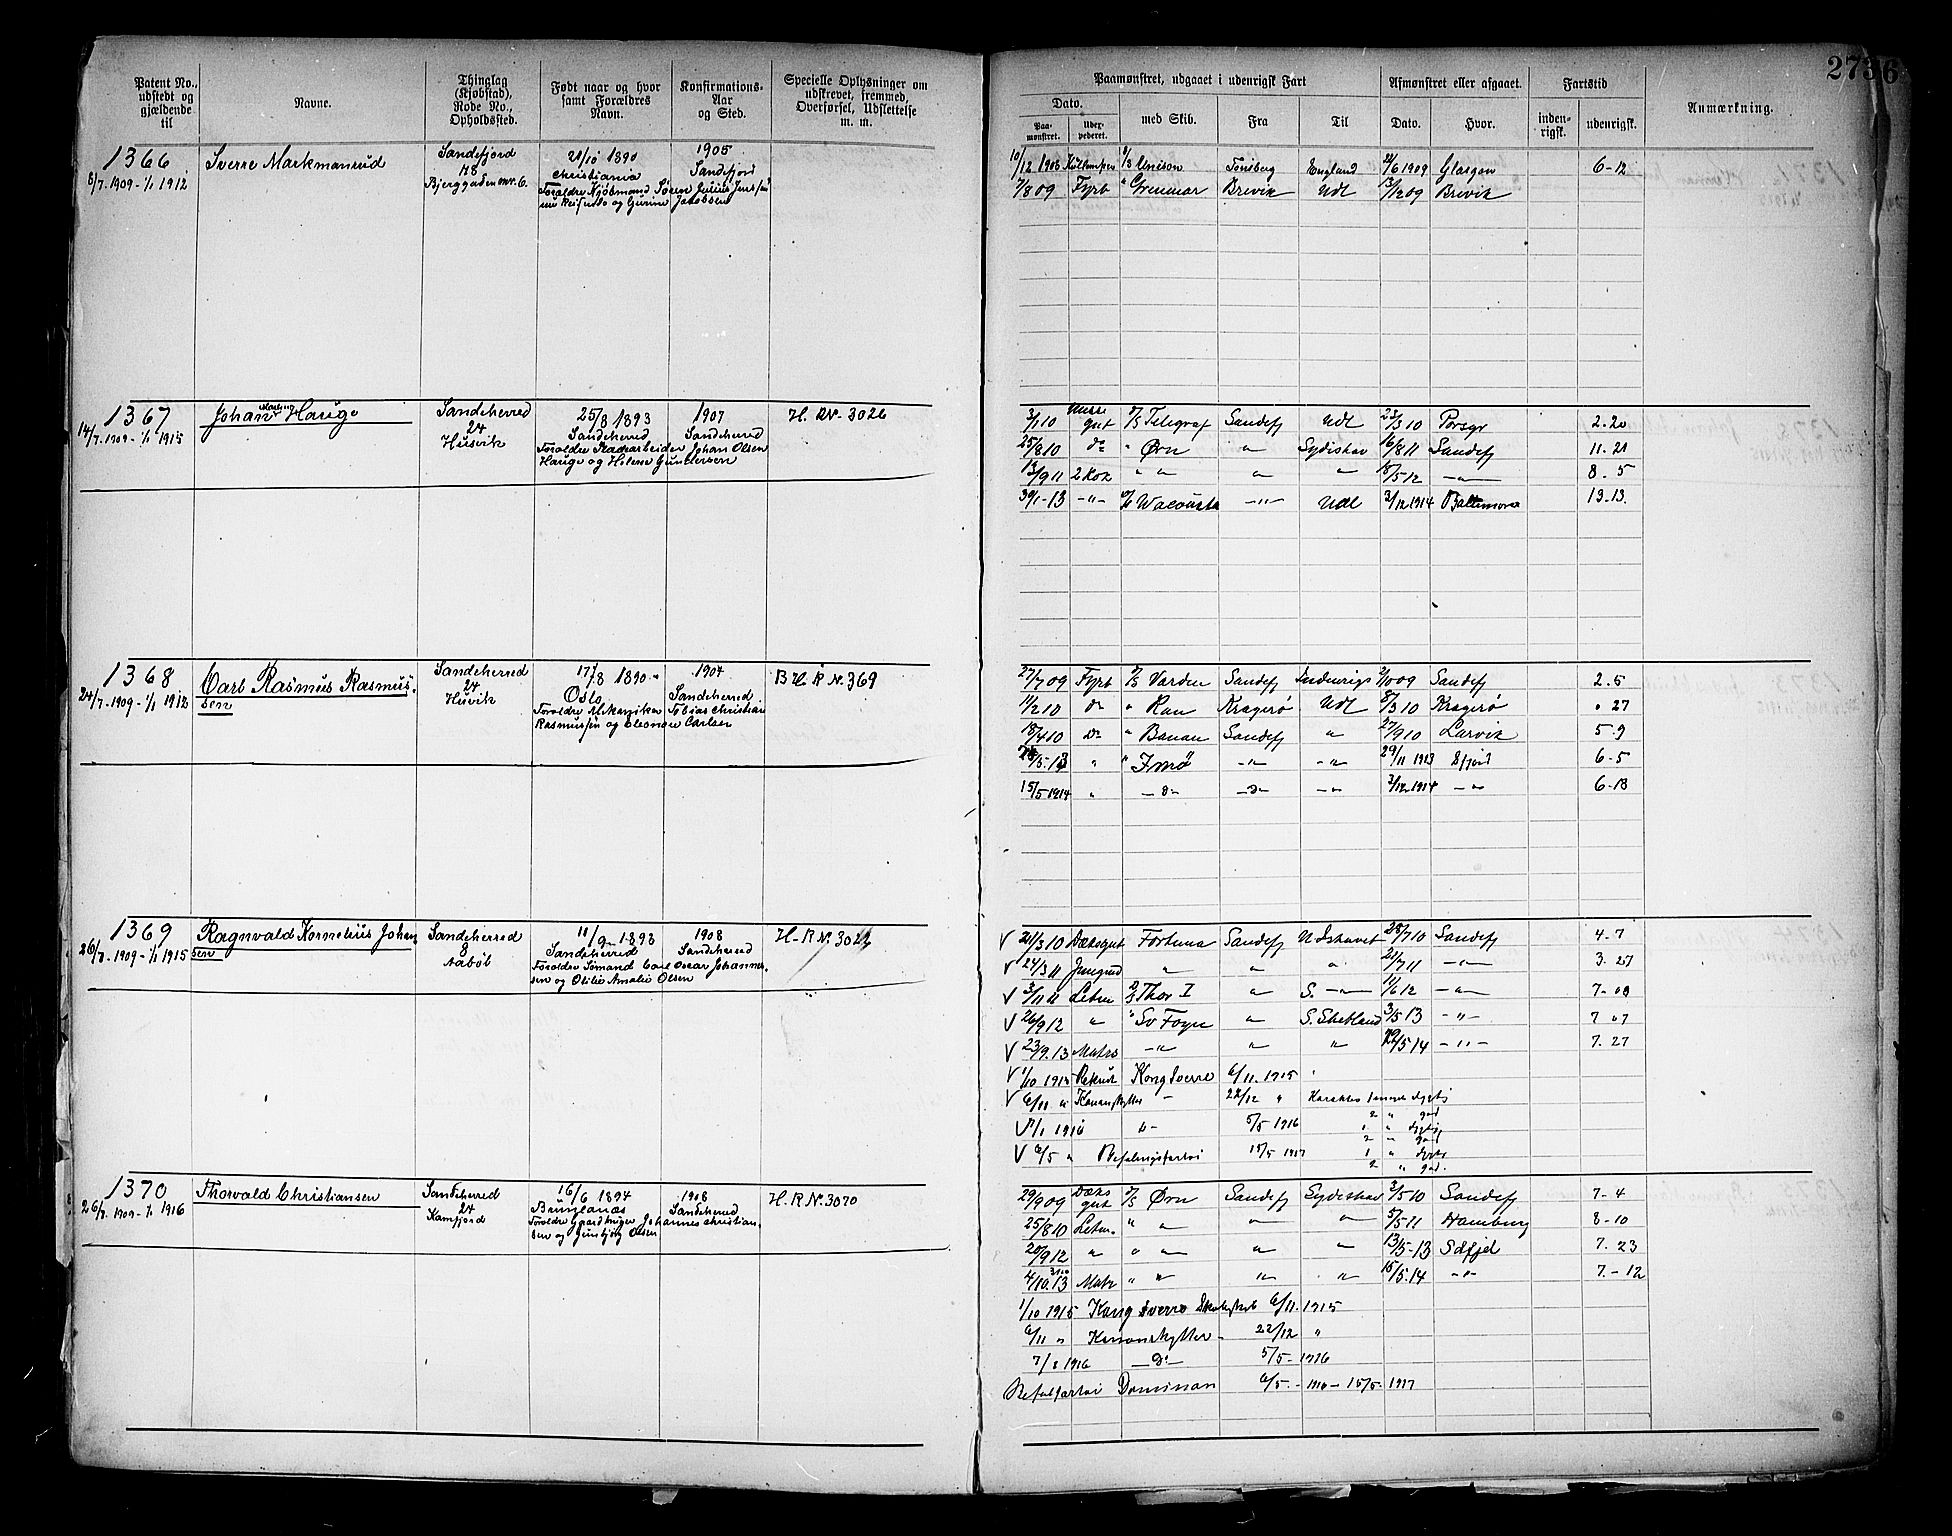 273
6
Patent No., udstedt og gjældende til
Navne.
Thinglag (Kjøbstad), Rode No., Opholdssted.
Født naar og hvor samt Forældres Navn.
Konfirmations-Aar og Sted.
Specielle Oplysninger om udskrevet, fremmed, Overførsel, Udslettelse m. m.
Paamønstret, udgaaet i udenrigsk Fart
Afmønstret eller afgaaet.
Fartstid
Anmærkning.
Dato.
Paamønstret.
Udexpederet.
med Skib.
Fra
Til
Dato.
Hvor.
indenrigsk.
udenrigsk.
1366
8/7. 1909 - 1/1 1912
Sverre Markmanrud
Sandefjord
Bjerggaden nr. 6.
21/10 1890
Christiania
1905
Sandefjord
10/12 1908 Unison Tønsberg England 21/6 1909 Glasgow 6-12
7/8 09 Fyrb " Gunnar Brevik Udl 13/12 09 Brevik
1367
14/7. 1909 - 1/1 1915
Johan Hauge
Sandeherred
24
Husvik
25/8 1893
Sandeherred
Forældre Johan Olsen
Hauge og Helene Gundersen
1907
Sandeherred
H. R.Nr. 3026
3/1 10 Messegut D/S Telegraf Sandefj Udl 23/3 10 Porsgr 2.20
25/8 10 do " Ørn " Sydishav 16/8 11 Sandefj 11.21
13/9 11 2 Kok " " " " 18/5 12 -"- 8.5
30/1-13 -"- Wacousta -"- Udl 3/12 1914 Baltimore 13.13.
1368
24/7. 1909 - 1/1 1912
Carl Rasmus Rasmussen
Sandeherred
24
Husvik
17/8 1890
Oslo
Forældre Mekaniker Tobias Christian
Rasmussen og Eleonore Carlsen
1904
Sandeherred
B H. R Nr. 369
27/7 09 Fyrb D/S Varden Sandefj Indenrigs 2/10 09 Sandefj 2.5
1/2 10 do " Ran Kragerø Udl 8/3 10 Kragerø " 27
18/4 10 do " Banan Sandefj " 27/9 10 Larvik 5.9
/5.13 " " Imø -"- -"- 29/11 1913 Sfjord 6-5
15/5 1914 " -d- -d- -"- 3/12 1914 -"- 6-18
1369
26/7. 1909 - 1/1 1915
Ragnvald Kornelius Johansen
Sandeherred
8
Aabøl
11/9 1893
Sandeherred
Forældre Sømand Carl Oscar Johannessen
og Otilie Amalie Olsen
1908
Sandeherred
H. R Nr. 302
V 21/3 10 Dæksgut Fortuna Sandefj Udishavet 28/7 10 Sandefj 4.7
V 24/3 11 Jungmd " " " 21/7 11 -"- 3.27
V 3/11 11 Letm D/S Thor I " S. -"- 11/6 12 -"- 7-08
V 26/9 12 " " Sv Foyn " S. Shetland 3/5 13 -"- 7 07
V 23/9. 13 Matrs -"- " " /5 14 -"- 7.27
V 1/10 1915 Rekrut Kong Sverre 6/11. 1915
V 6/11 " Kanonskytter - 22/12 " Karakter 1 meget dygtig
2 " god
V 7/1 1916 "- 5/5 1916 1 " dygtig
2 " god
V 6/5 " Bevogtningsfartøi 15/5 1917 1 " dygtig
2 " god.
1370
26/7. 1909 - 1/1 1916
Thorvald Christiansen
Sandeherred
24
Kamfjord
16/6 1894
Brunlanæs
Forældre Gaardbruger Johannes Christiansen
og Gunhild Olsen
1908
Sandeherred
H. R Nr. 3070
29/9 09 Dæksgut D/S Ørn Sandefj Sydishav 3/5 10 Sandefj 7-4
25/8 10 Letm. " " " " 5/5 11 Hamburg 8-10
20/9 12 " " " " " 13/5-13 Sdfjd 7.23
4/10.13 Matr " " " " 15/5.14 -"- 7.-12
1/10 1915 Kong Sverre 6/11. 1915
6/11 " Kanonskytter - 22/12 "
7/1 1916 -do- 5/5-1916
6/5. - 1916 - 15/5. 1917